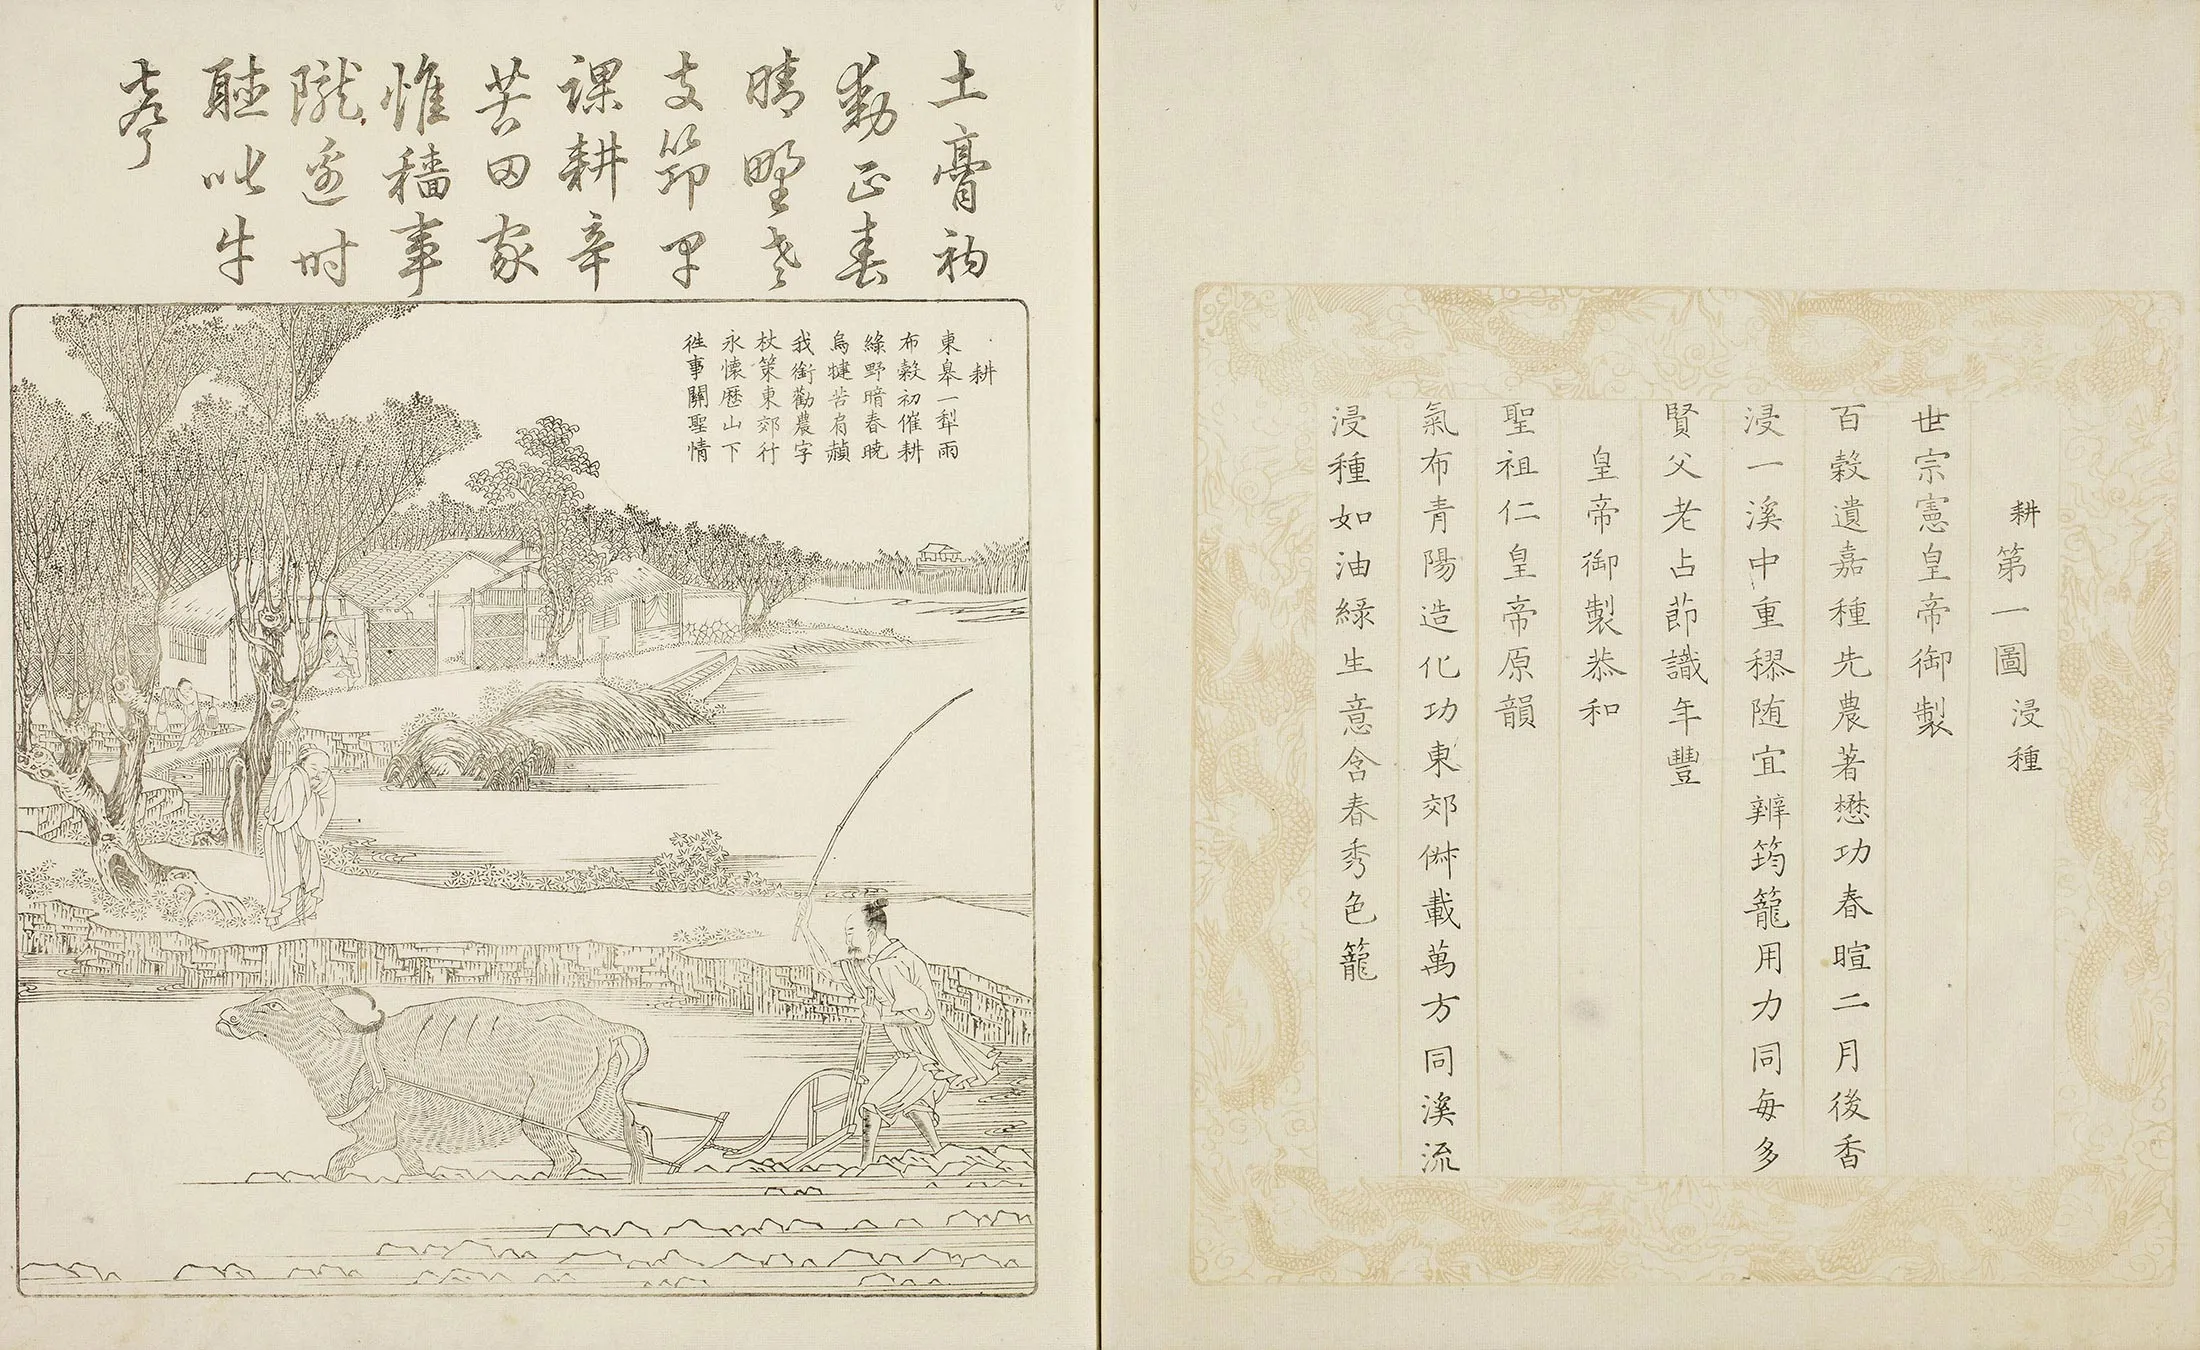 耕第一圖 浸種
世宗憲皇帝御製
百榖遺嘉種先農著懋功春暄二月後香
浸一溪中重穋随宜辨筠籠用力同每多
賢父老占節識年豐
皇帝御製恭和
聖祖仁皇帝原韻
氣布青陽造化功東郊俶載萬方同溪流
浸種如油綠生意含春秀色籠
土膏初
動正春
晴野老
支筇早
課耕辛
苦田家
惟穡事
隴邊時
聽叱牛
聲
耕
東皋一犂雨
布穀初催耕
綠野暗春曉
烏犍苦肩赬
我銜勸農字
杖策東郊行
永懷歷山下
往事關聖情